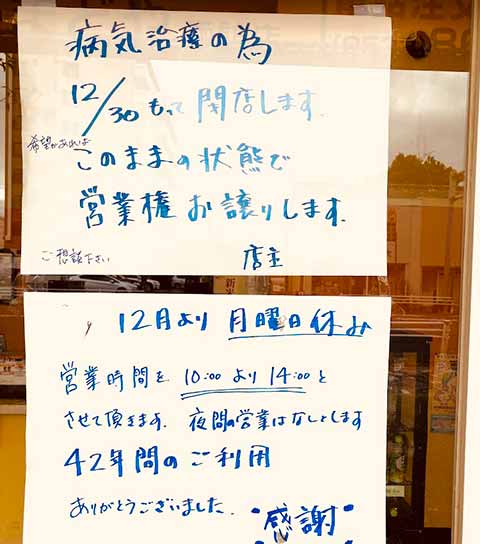 病気治療の為
12/30もって閉店します.
希望があれば
このままの状態で
営業権お譲りします.
ご相談下さい
店主
12月より 月曜日休み
営業時間を 10:00 より 14:00 と
させて頂きます. 夜間の営業はなしとします
42年間のご利用
ありがとうございました.
感謝